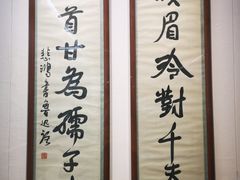 眉冷對千夫
首甘為孺子
悲鴻書魯迅